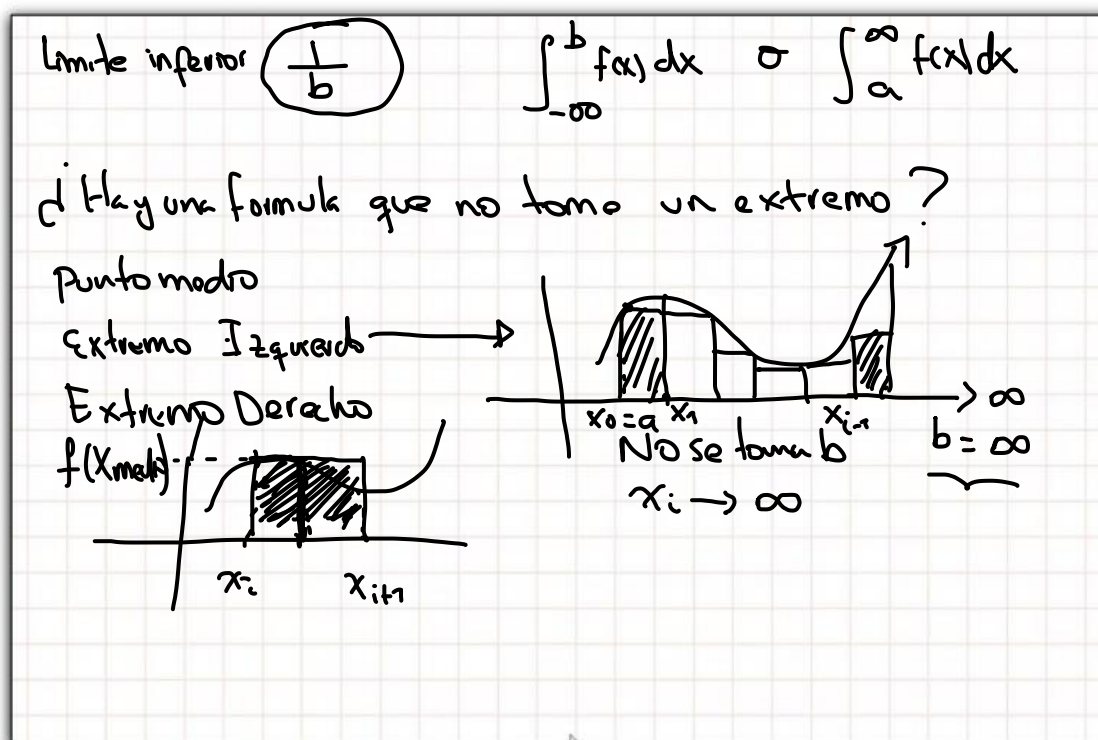 Limite inferior 1/b ∫_{-∞}^{b} f(x) dx o ∫_{a}^{∞} f(x) dx
¿Hay una formula que no tome un extremo?
Punto medio
Extremo Izquierdo
Extremo Derecho
f(Xmedio)
x₀=a x₁ x_{i-1} ∞
No se toma b b = ∞
x_i → ∞
x_i x_{i+1}